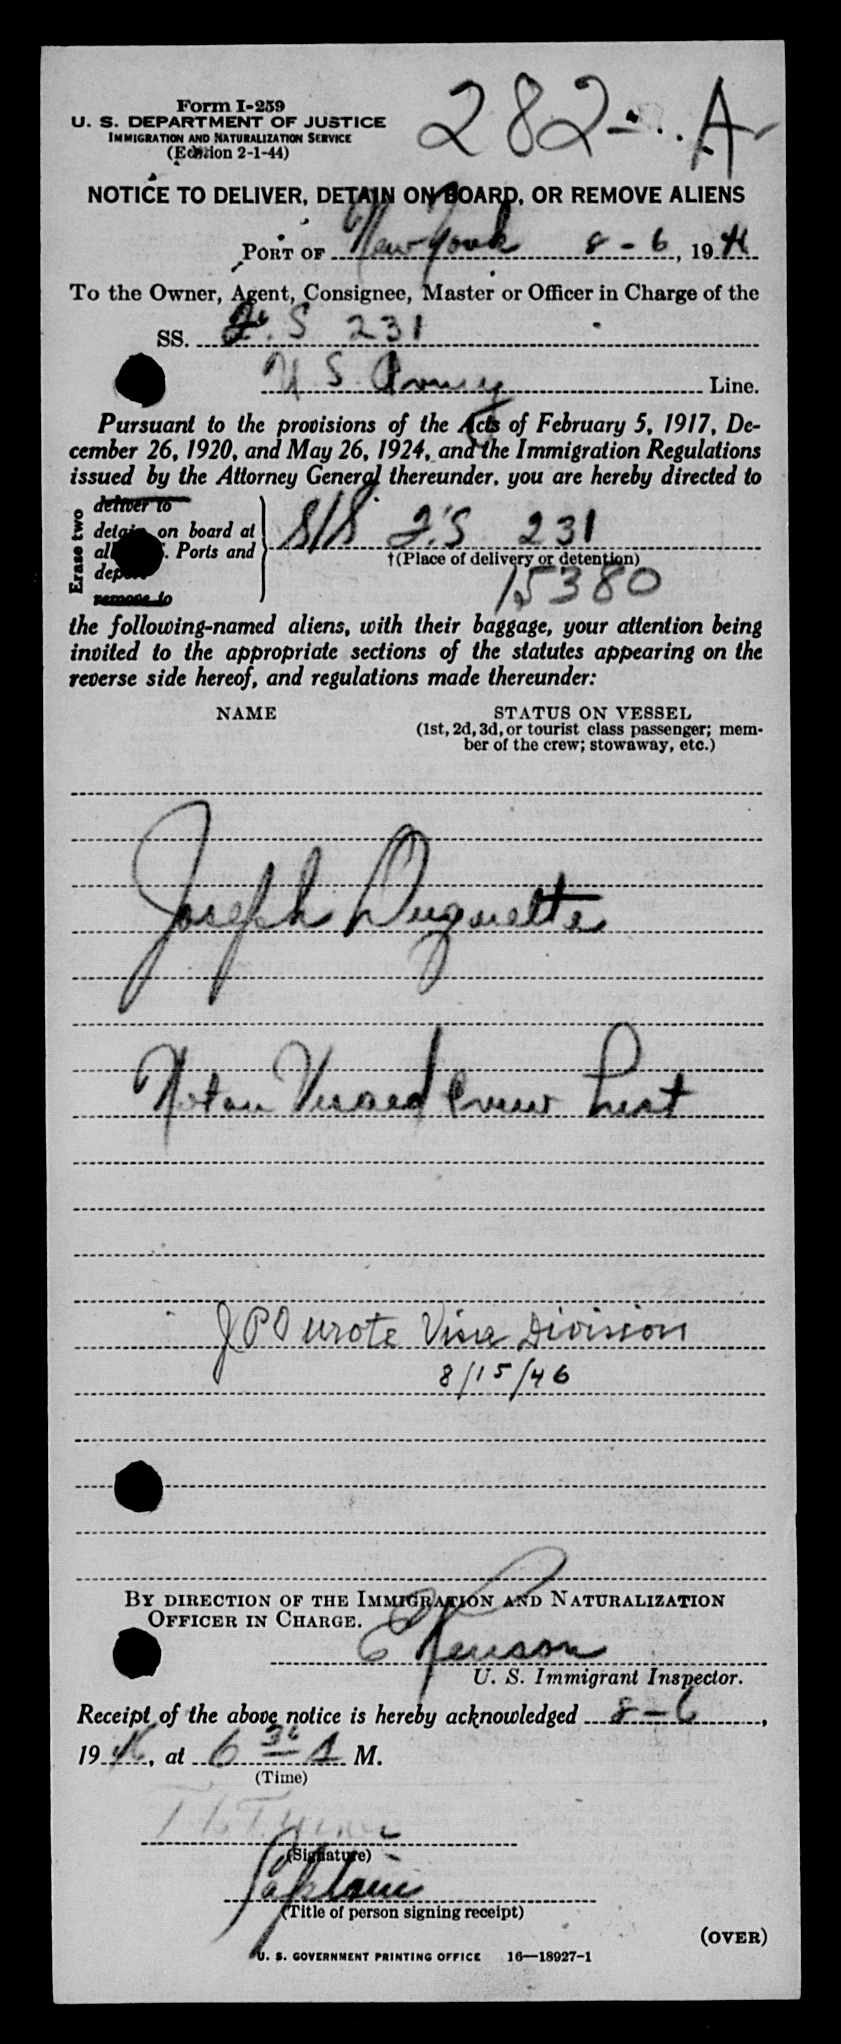 Form I-259
282-A
U. S. DEPARTMENT OF JUSTICE
IMMIGRATION AND NATURALIZATION SERVICE
(Edition 2-1-44)
NOTICE TO DELIVER, DETAIN ON BOARD, OR REMOVE ALIENS
PORT OF New York 8-6, 19
To the Owner, Agent, Consignee, Master or Officer in Charge of the
SS. F. S 231
U. S. Army Line.
Pursuant to the provisions of the Acts of February 5, 1917, De-
cember 26, 1920, and May 26, 1924, and the Immigration Regulations
issued by the Attorney General thereunder, you are hereby directed to
Erase two
deliver to
detain on board at
all U.S. Ports and
deport
remove to
S/S F.S 231
†(Place of delivery or detention)
15380
the following-named aliens, with their baggage, your attention being
invited to the appropriate sections of the statutes appearing on the
reverse side hereof, and regulations made thereunder:
NAME STATUS ON VESSEL
(1st, 2d, 3d, or tourist class passenger; mem-
ber of the crew; stowaway, etc.)
Joseph Duquette
Not on Visaed Crew List
JPO wrote Visa Division
8/15/46
BY DIRECTION OF THE IMMIGRATION AND NATURALIZATION
OFFICER IN CHARGE.
U. S. Immigrant Inspector.
Receipt of the above notice is hereby acknowledged 8-6,
1946, at 6 30 A M.
(Time)
(Signature)
Captain
(Title of person signing receipt)
(OVER)
U. S. GOVERNMENT PRINTING OFFICE 16—18927-1